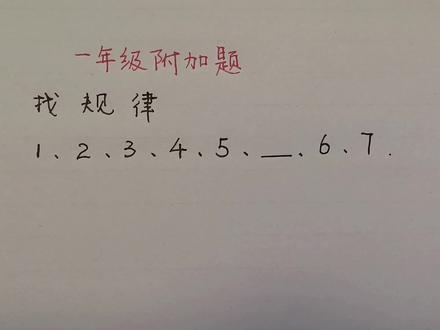 一年级附加题
找规律
1、2、3、4、5、__、6、7.